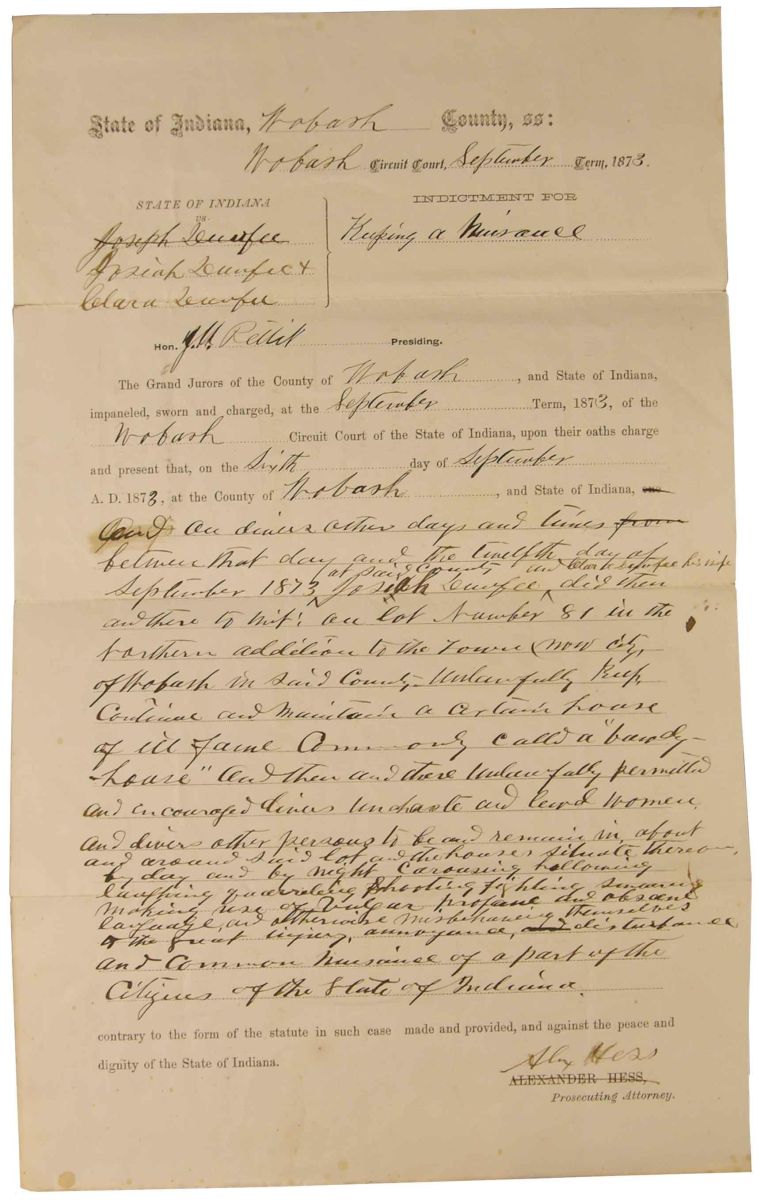 State of Indiana, Wabash County, ss:
Wabash Circuit Court, September Term, 1873.
STATE OF INDIANA
vs
Joseph Dunfee
Josiah Dunfee &
Clara Dunfee
INDICTMENT FOR
Keeping a Nuisance
Hon. J. U. Pettit Presiding.
The Grand Jurors of the County of Wabash, and State of Indiana,
impaneled, sworn and charged, at the September Term, 1873, of the
Wabash Circuit Court of the State of Indiana, upon their oaths charge
and present that, on the Sixth day of September
A. D. 1873, at the County of Wabash, and State of Indiana,
and on divers other days and times from
between that day and the twelfth day of
at said County and Clara Dunfee his wife
September 1873, Josiah Dunfee, did then
and there to wit: on lot Number 81 in the
Northern addition to the Town (now city,
of Wabash in said County Unlawfully Keep,
Continue and maintain a certain house
of ill fame Commonly called a "bawdy-
-house" and then and there Unlawfully permitted
and encouraged divers unchaste and lewd women,
and divers other persons to be and remain in, about
and around said lot and the houses situate thereon,
by day and by night carousing hollowing
laughing quarreling shooting fighting swearing
making use of vulgar profane and obscene
language, and otherwise misbehaving themselves
to the great injury, annoyance, and disturbance
and Common Nuisance of a part of the
Citizens of the State of Indiana.
contrary to the form of the statute in such case made and provided, and against the peace and
dignity of the State of Indiana.
Alex Hess
ALEXANDER HESS,
Prosecuting Attorney.